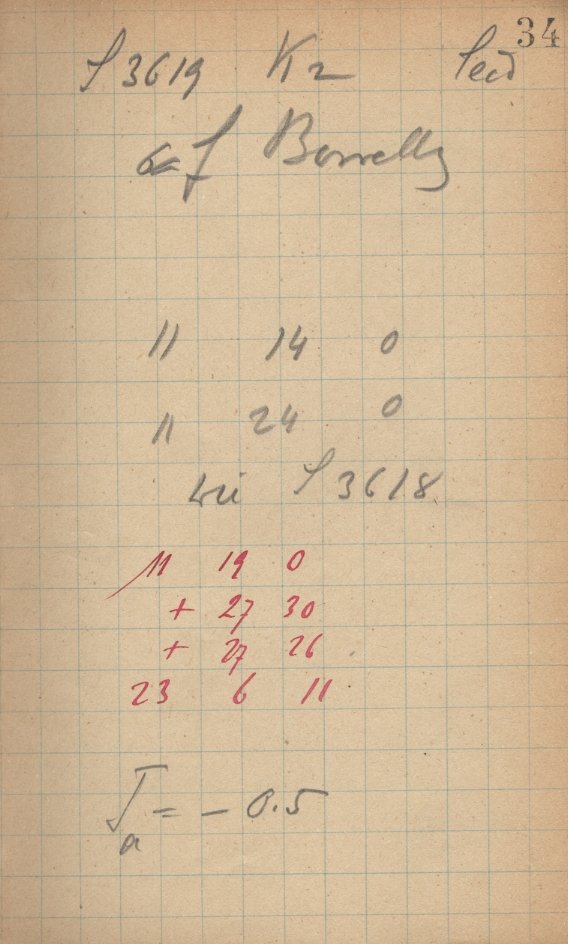 34
S 3619 K2
f Borrelly
11 14 0
11 24 0
wie S 3618
11 19 0
+ 27 30
+ 27 26
23 6 11
Ta = - 0.5